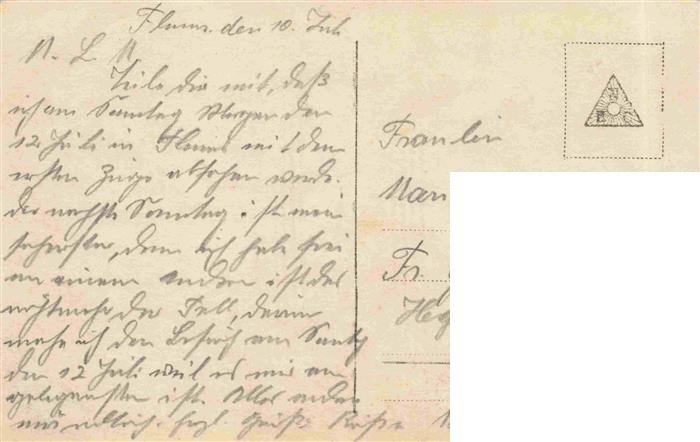 Flums. den 10. Juli
M. L. M.
Teile dir mit, daß
ich am Sonntag Morgen den
12 Juli in Flums mit dem
ersten Zuge abfahren werde.
der nächste Sonntag ist mein
denn ich habe frei
an einem andern ist das
nicht mehr der Fall, darum
mache ich den Besuch am Sontag
den 12 Juli weil es mir am
gelegensten ist. Alles andere
mündlich. Grüße Küße
Fraulein
Mari
Fr.
Heg